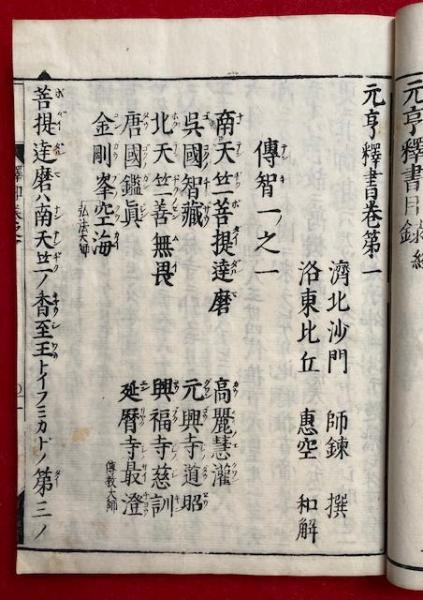 元亨釋書目錄終
元亨釋書卷第一
濟北沙門 師錬 撰
洛東比丘 惠空 和解
傳智一ノ之一
南天竺菩提達磨 高麗慧灌
吳國智藏 元興寺道昭
北天竺善無畏 興福寺慈訓
唐國鑑眞 延曆寺最澄 傳教大師
金剛峯空海 弘法大師
菩提達磨ハ南天竺ノ香至王トイフミカドノ第三ノ